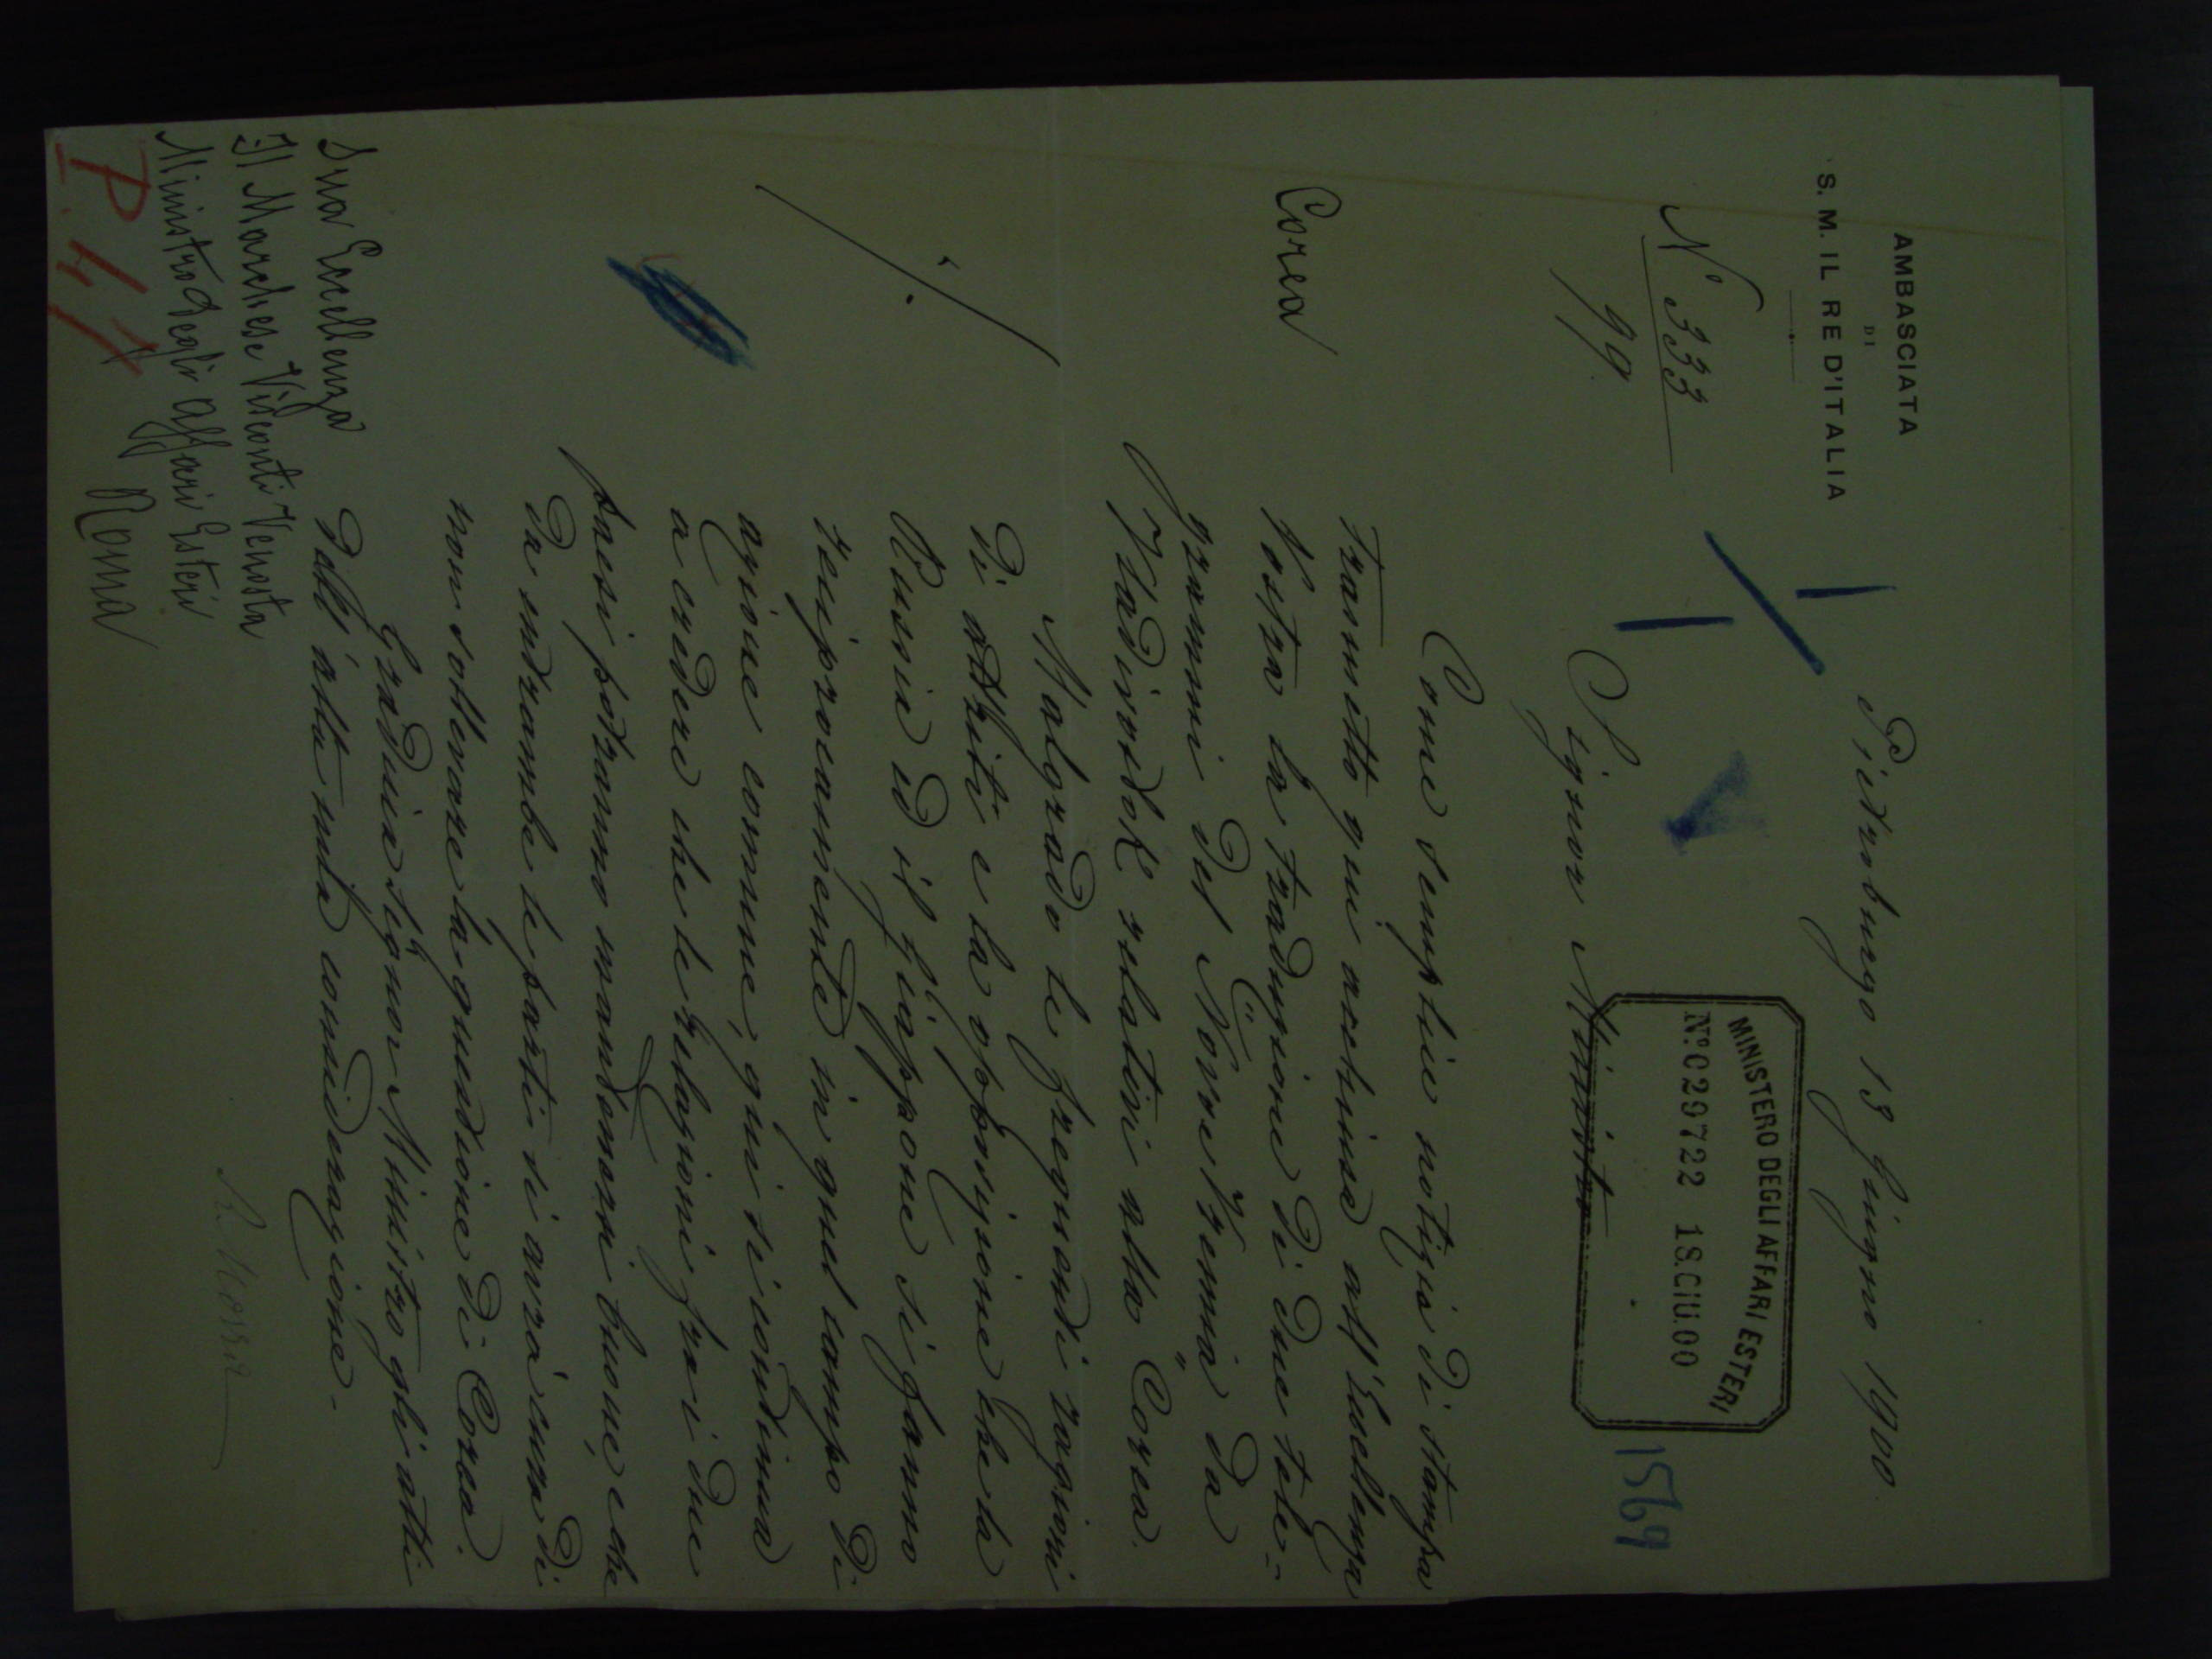 AMBASCIATA
DI
S. M. IL RE D'ITALIA
Pietroburgo 13 Giugno 1900.
N° 333
99
MINISTERO DEGLI AFFARI ESTERI
N.º 029722 18.GIU.00
1569
Signor Ministro.
Corea
Come semplice notizia di stampa
trasmetto qui acchiusa all'Eccellenza
Vostra la traduzione di due tele-
grammi del "Novoe Vremia" da
Vladivostok relativi alla Corea.
Malgrado le frequenti ragioni
di attriti e la opposizione che la
Russia ed il Giappone si fanno
reciprocamente in quel campo di
azione comune, qui si continua
a credere che le relazioni fra i due
paesi potranno mantenersi buone, e che
da entrambe le parti si avrà cura di
non sollevare la questione di Corea.
Gradisca Signor Ministro gli atti
dell'alta mia considerazione.
Sua Eccellenza
Il Marchese Visconti Venosta
Ministro degli Affari Esteri
Roma
P. 47